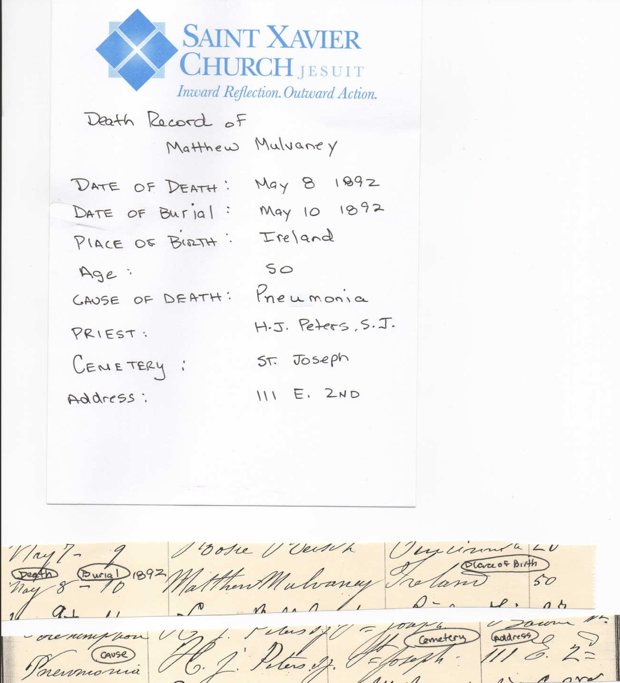 SAINT XAVIER
CHURCH JESUIT
Inward Reflection. Outward Action.
Death Record of
Matthew Mulvaney
DATE OF DEATH: May 8 1892
DATE OF Burial: May 10 1892
PlACE OF BIRTH: Ireland
Age: 50
CAUSE OF DEATH: Pneumonia
PRIEST: H.J. Peters, S.J.
CEMETERY: ST. Joseph
Address: 111 E. 2ND
May 7 - 9
Death Burial 1892 Place of Birth
May 8 - 10 Matthew Mulvaney Ireland 50
Cemetery Address
Cause
Pneumonia H. J. Peters sj. St Joseph 111 E. 2